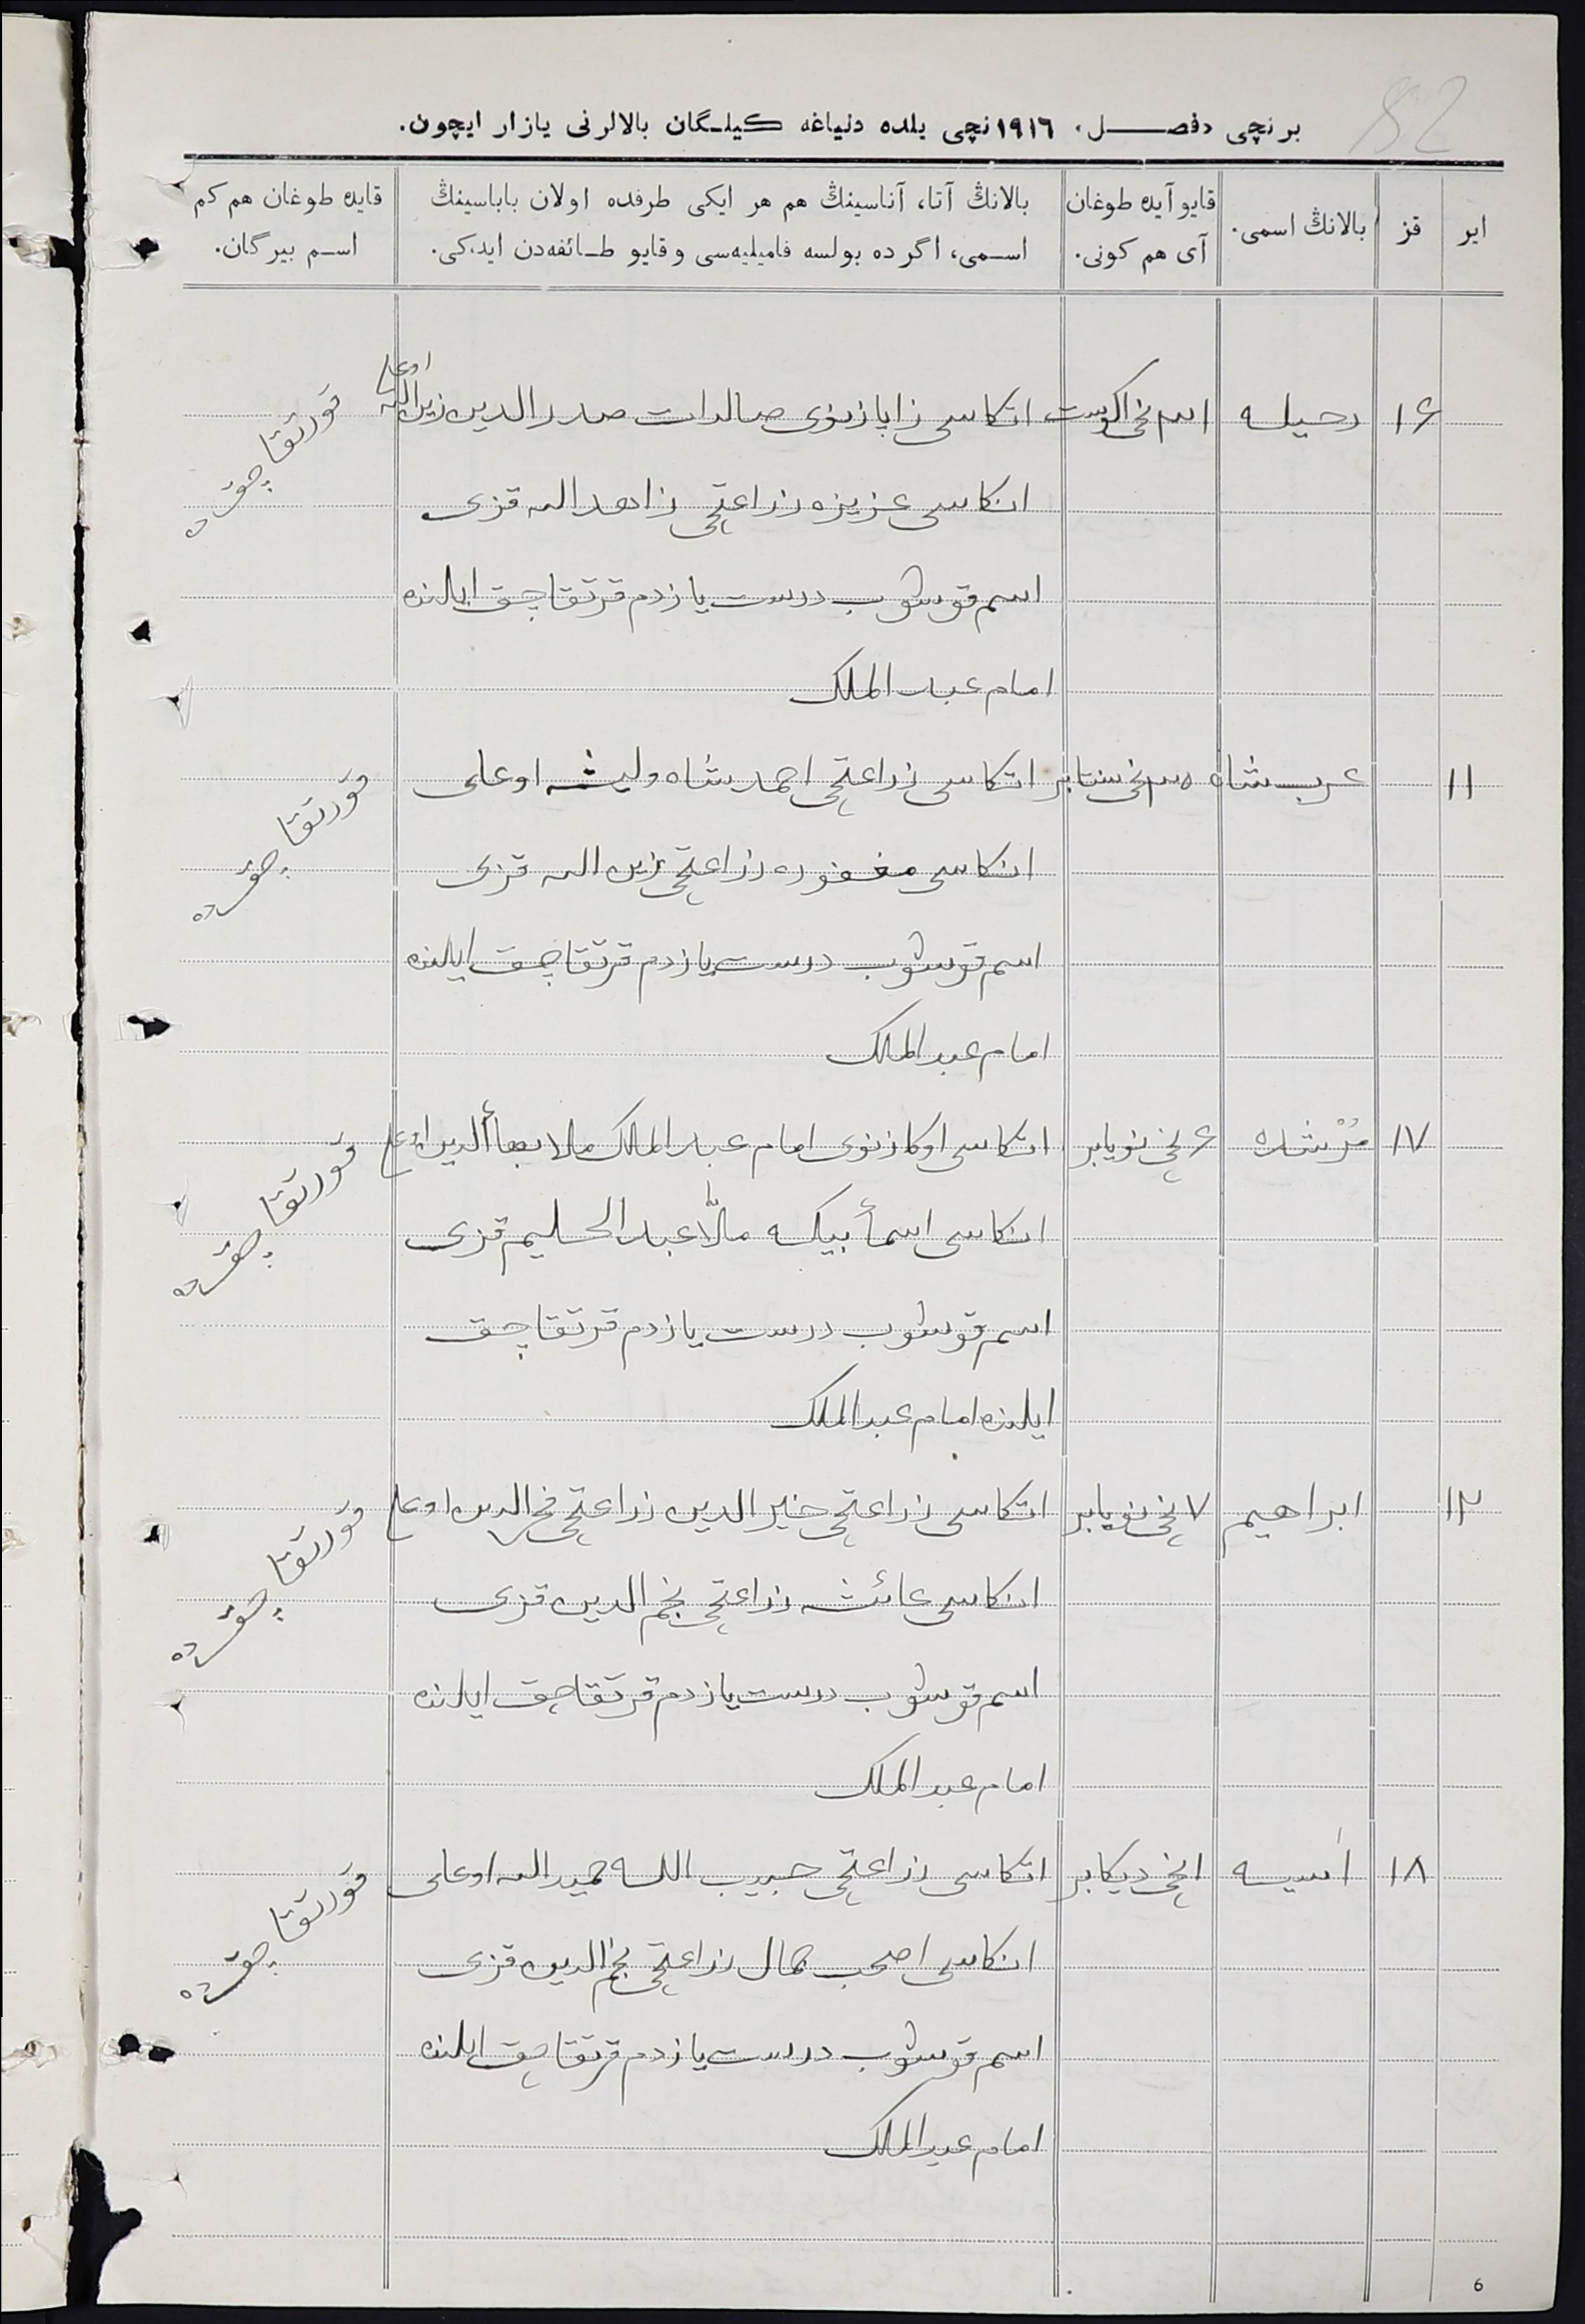 82
برنچی «فصل» ١٩١٦نچی یلده دنیاغه كیلگان بالالرنی یازار ایچون.
ایر	قز	بالانڭ اسمی.	قایو آیده طوغان آی هم كونی.	بالانڭ آتا، آناسینڭ هم هر ایكی طرفده اولان باباسینڭ اسمی، اگر ده بولسه فامیلیه‌سی و قایو طائفه‌دن ایدكی.	قایده طوغان هم كم اسم بیرگان.
١٦ رحیله نچی اكوست اتكاسی زاپازنوی صالدات صدرالدین زین الله اوغلی قورتقاچقده
انكاسی عزیزه زراعتچی زاهدالله قزی
اسم قوشوب درست یازدم قرتقاچق ایلنده
امام عبدالملك
١١ عرب شاه نچی سنتابر اتكاسی زراعتچی احمدشاه ولیشه اوغلی قورتقاچقده
انكاسی مغفوره زراعتچی زین الله قزی
اسم قوشوب درست یازدم قرتقاچق ایلنده
امام عبدالملك
١٧ مرشده ٦نچی نویابر اتكاسی اوكازنوی امام عبدالملك ملا بهأالدین اوغلی قورتقاچقده
انكاسی اسمأ بیكه ملا عبدالحلیم قزی
اسم قوشوب درست یازدم قرتقاچق
ایلنده امام عبدالملك
١٢ ابراهیم ٧نچی نویابر اتكاسی زراعتچی خیرالدین زراعتچی فخرالدین اوغلی قورتقاچقده
انكاسی عائشه زراعتچی نجم الدین قزی
اسم قوشوب درست یازدم قرتقاچق ایلنده
امام عبدالملك
١٨ اسیه ١نچی دیكابر اتكاسی زراعتچی حبیب الله حمیدالله اوغلی قورتقاچقده
انكاسی اصحب جمال زراعتچی نجم الدین قزی
اسم قوشوب درست یازدم قرتقاچق ایلنده
امام عبدالملك
6